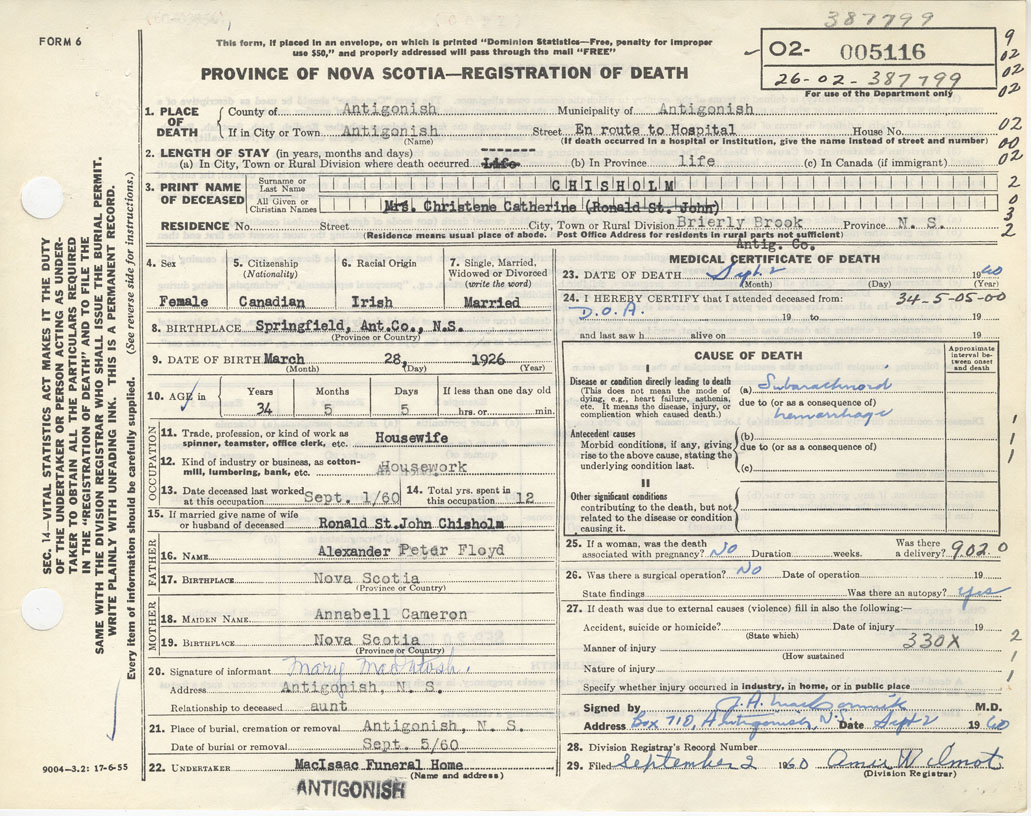 387799
FORM 6
This form, if placed in an envelope, on which is printed "Dominion Statistics—Free, penalty for improper
use $50," and properly addressed will pass through the mail "FREE"
02- 005116
26-02-387799
For use of the Department only
9
02
02
02
PROVINCE OF NOVA SCOTIA—REGISTRATION OF DEATH
1. PLACE OF DEATH
County of Antigonish Municipality of Antigonish
If in City or Town Antigonish Street En route to Hospital House No. 02
(Name) (If death occurred in a hospital or institution, give the name instead of street and number) 00
2. LENGTH OF STAY (in years, months and days)
(a) In City, Town or Rural Division where death occurred Life (b) In Province life (c) In Canada (if immigrant) 02
3. PRINT NAME OF DECEASED
Surname or Last Name CHISHOLM 2
All Given or Christian Names Mrs. Christene Catherine (Ronald St. John) 0
3
RESIDENCE No. Street City, Town or Rural Division Brierly Brook Province N. S. 2
(Residence means usual place of abode. Post Office Address for residents in rural parts not sufficient)
Antig. Co.
4. Sex
Female
5. Citizenship
(Nationality)
Canadian
6. Racial Origin
Irish
7. Single, Married,
Widowed or Divorced
(write the word)
Married
8. BIRTHPLACE Springfield, Ant.Co., N.S.
(Province or Country)
9. DATE OF BIRTH March 28, 1926
(Month) (Day) (Year)
10. AGE in
Years Months Days If less than one day old
34 5 5 hrs. or min.
OCCUPATION
11. Trade, profession, or kind of work as
spinner, teamster, office clerk, etc. Housewife
12. Kind of industry or business, as cotton-
mill, lumbering, bank, etc. Housework
13. Date deceased last worked
at this occupation Sept. 1/60
14. Total yrs. spent in
this occupation 12
15. If married give name of wife
or husband of deceased Ronald St.John Chisholm
FATHER
16. NAME Alexander Peter Floyd
17. BIRTHPLACE Nova Scotia
(Province or Country)
MOTHER
18. MAIDEN NAME Annabell Cameron
19. BIRTHPLACE Nova Scotia
(Province or Country)
20. Signature of informant Mary MacIntosh.
Address Antigonish, N. S.
Relationship to deceased aunt
21. Place of burial, cremation or removal Antigonish, N. S.
Date of burial or removal Sept. 5/60
22. UNDERTAKER MacIsaac Funeral Home
(Name and address)
ANTIGONISH
MEDICAL CERTIFICATE OF DEATH
23. DATE OF DEATH Sept. 2 1960
(Month) (Day) (Year)
24. I HEREBY CERTIFY that I attended deceased from: 34-5-05-00
D.O.A. 19 to 19
and last saw h alive on 19
CAUSE OF DEATH
Approximate
interval be-
tween onset
and death
I
Disease or condition directly leading to death
(This does not mean the mode of
dying, e.g., heart failure, asthenia,
etc. It means the disease, injury, or
complication which caused death.)
(a) Subarachnoid
due to (or as a consequence of)
hemorrhage
Antecedent causes
Morbid conditions, if any, giving
rise to the above cause, stating the
underlying condition last.
(b)
due to (or as a consequence of)
(c)
1
1
1
II
Other significant conditions
contributing to the death, but not
related to the disease or condition
causing it.
25. If a woman, was the death
associated with pregnancy? No Duration weeks. Was there
a delivery? 902.0
26. Was there a surgical operation? No Date of operation 19
State findings Was there an autopsy? yes
27. If death was due to external causes (violence) fill in also the following:—
Accident, suicide or homicide? Date of injury 19
(State which)
Manner of injury 330X 2
(How sustained)
Nature of injury 1
Specify whether injury occurred in industry, in home, or in public place 1
Signed by J.A. MacCormick M.D.
Address Box 710, Antigonish, N.S. Date Sept 2 1960
28. Division Registrar's Record Number
29. Filed September 2 1960
(Division Registrar)
SEC. 14—VITAL STATISTICS ACT MAKES IT THE DUTY
OF THE UNDERTAKER OR PERSON ACTING AS UNDER-
TAKER TO OBTAIN ALL THE PARTICULARS REQUIRED
IN THE "REGISTRATION OF DEATH" AND TO FILE THE
SAME WITH THE DIVISION REGISTRAR WHO SHALL ISSUE THE BURIAL PERMIT.
WRITE PLAINLY WITH UNFADING INK. THIS IS A PERMANENT RECORD.
Every item of information should be carefully supplied. (See reverse side for instructions.)
9004-3.2: 17-6-55